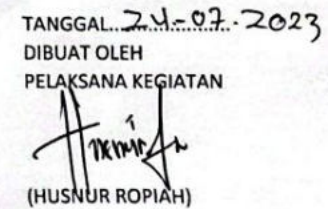 TANGGAL...24-07-2023
DIBUAT OLEH
PELAKSANA KEGIATAN
(HUSNUR ROPIAH)